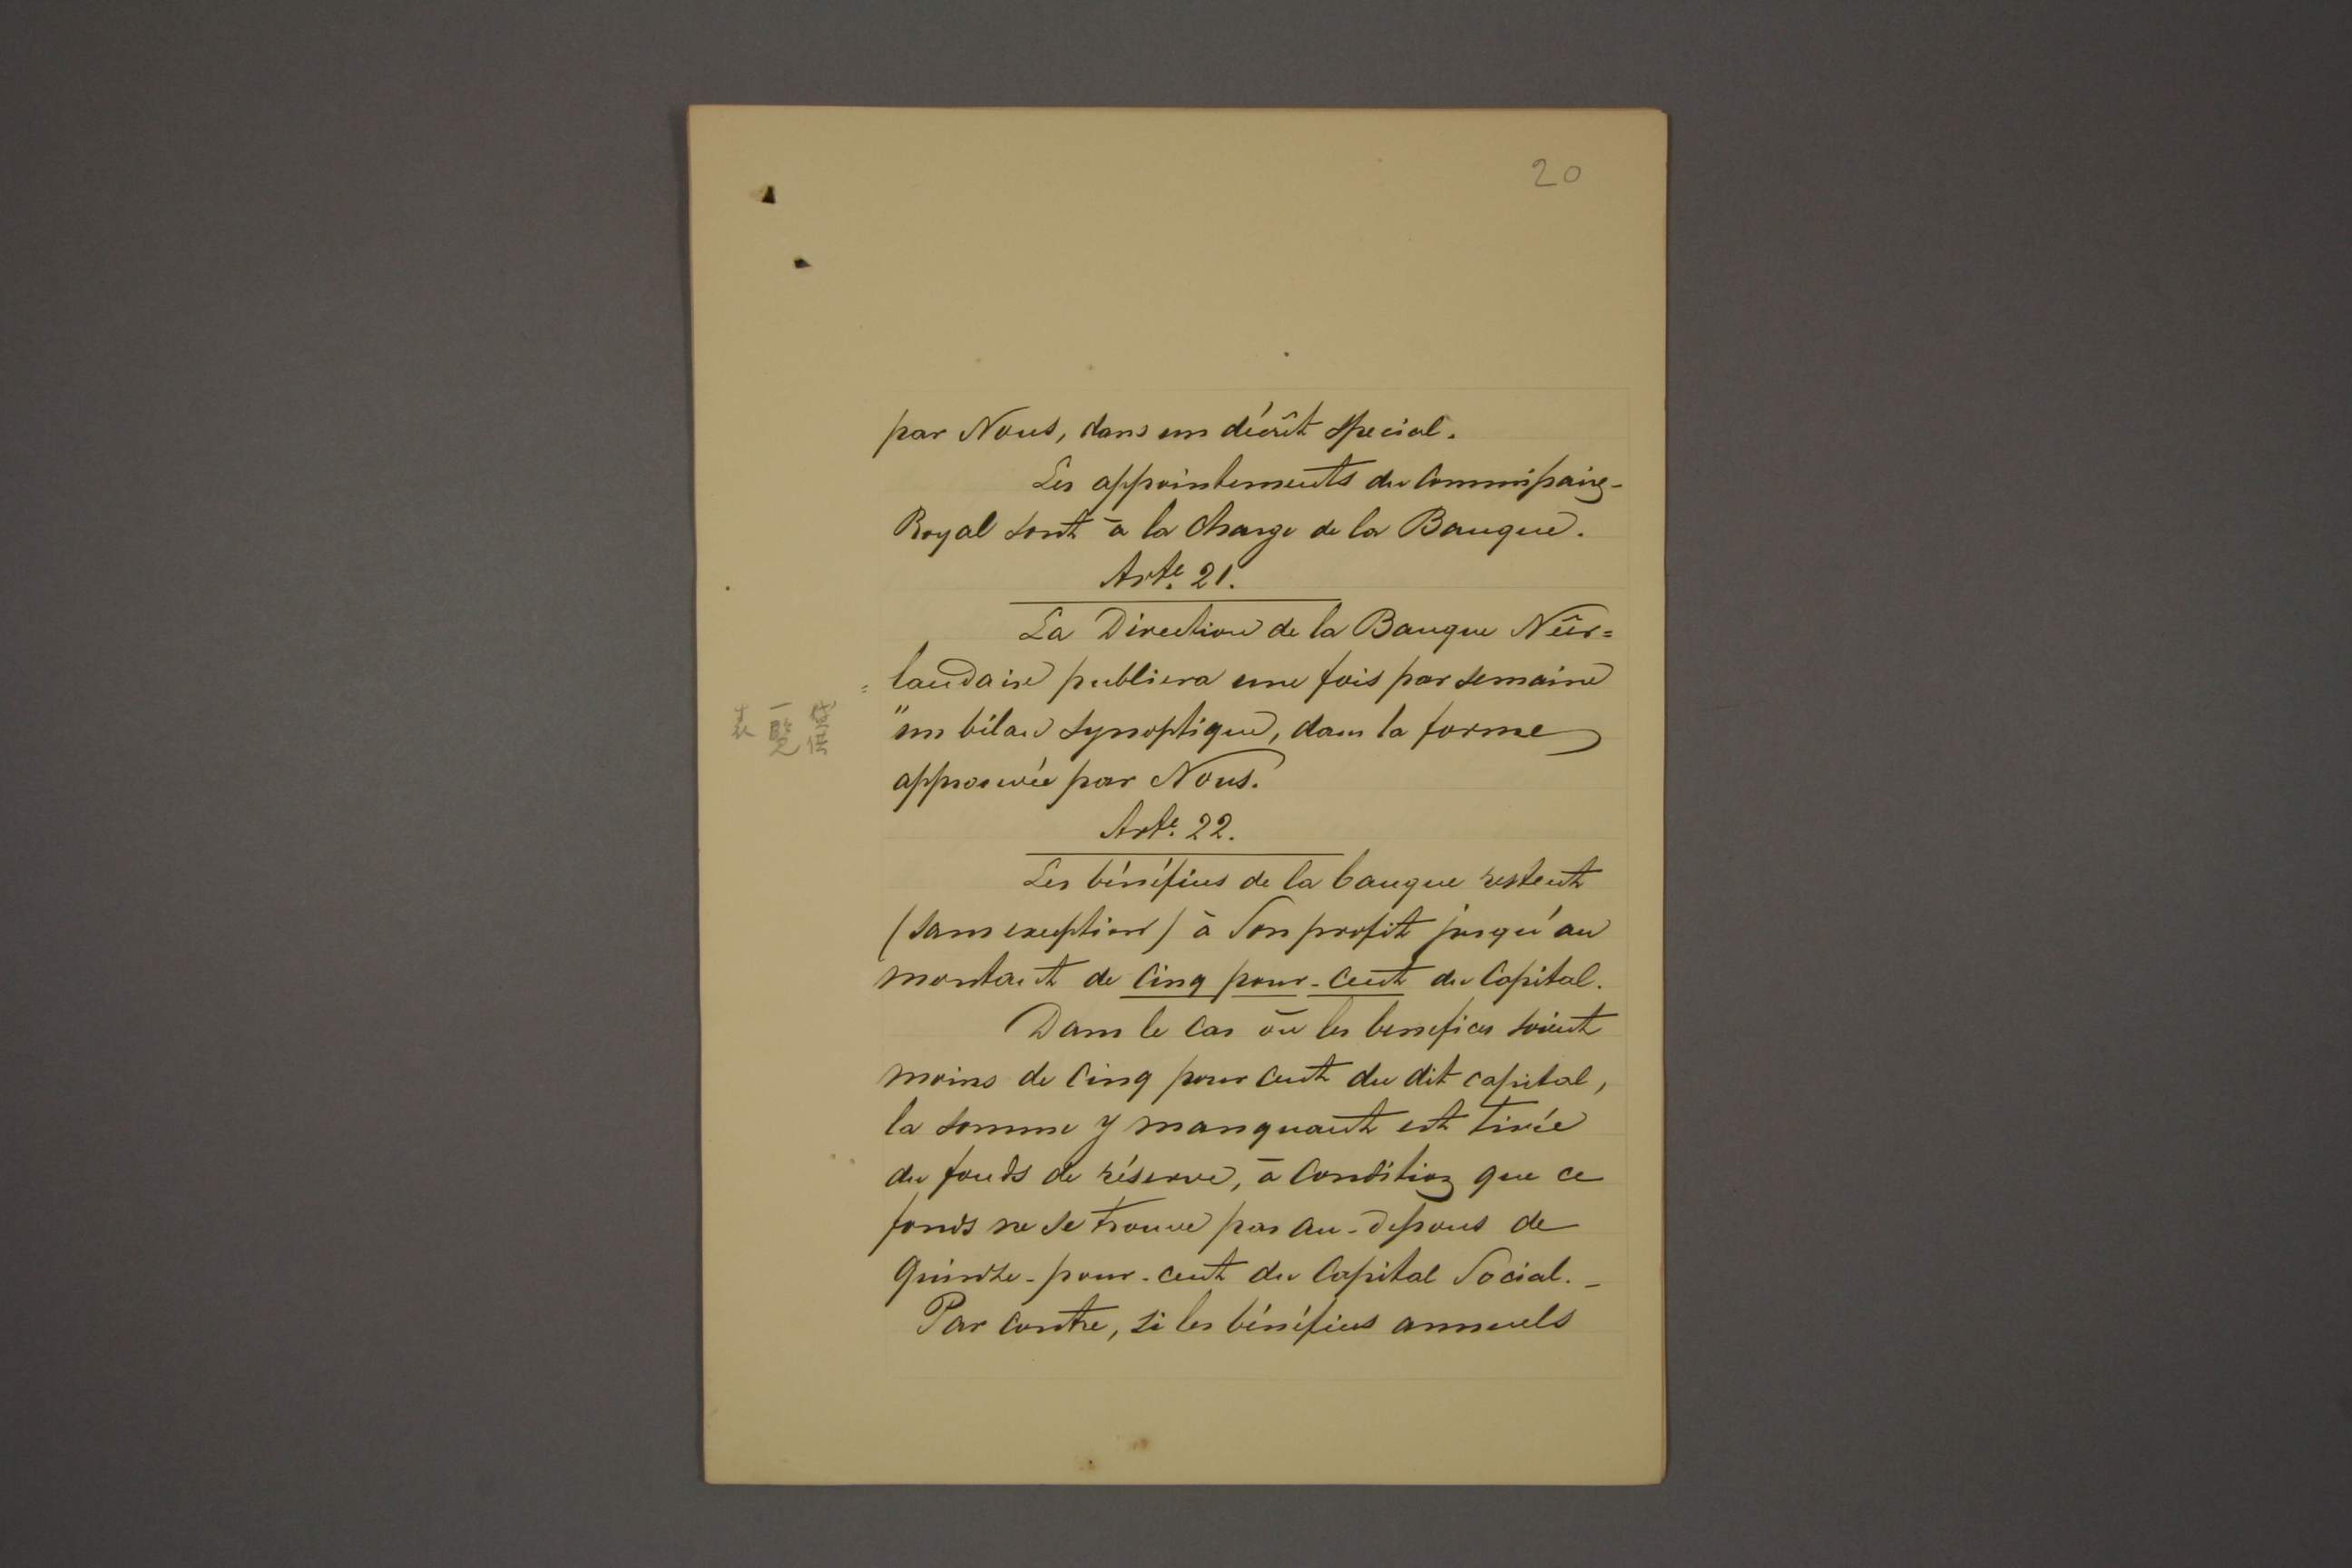 20
par Nous, dans un décrêt special.
Les appointements du Commissaire-
Royal sont à la charge de la Banque.
Arte. 21.
La Direction de la Banque Néer=
=landaise publiera une fois par semaine
"un bilan synoptique, dans la forme
一覧
表
approuvée par Nous.
Arte. 22.
Les bénéfices de la banque restent
(sans exeption) à son profit jusqu'au
montant de cinq pour-cent du Capital.
Dans le cas où les benefices soient
moins de cinq pour cent du dit capital,
la somme y manquant est tirée
du fonds de réserve, à condition que ce
fonds ne se trouve pas au-dessous de
quinze-pour-cent du Capital Social._
Par contre, si les bénéfices annuels